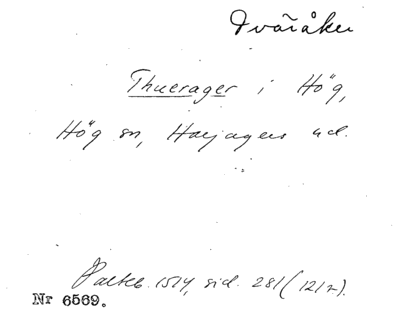 Tväråker
Thuerager i Hög,
Hög sn, Harjagers hd.
Palteb. 1514, sid. 281 (12/2).
Nr 6569.